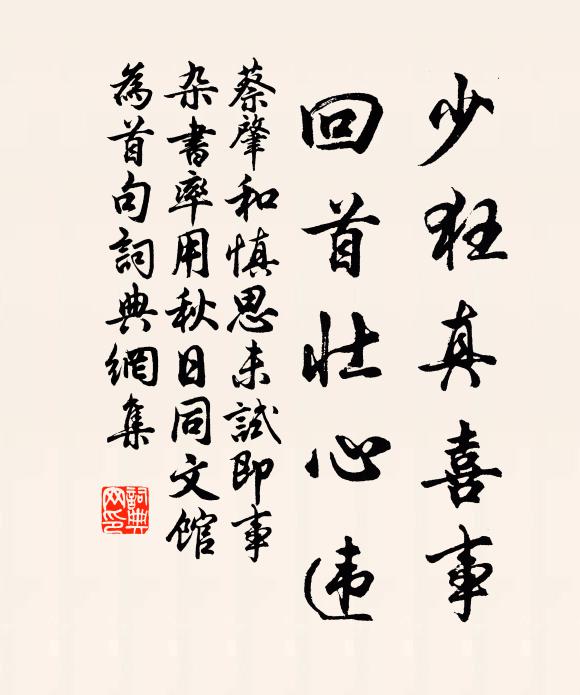 少狂真喜事
回首壮心违
蔡肇和慎思未試即事
杂書率用秋日同文馆
為首句詞典網集
詞典网印